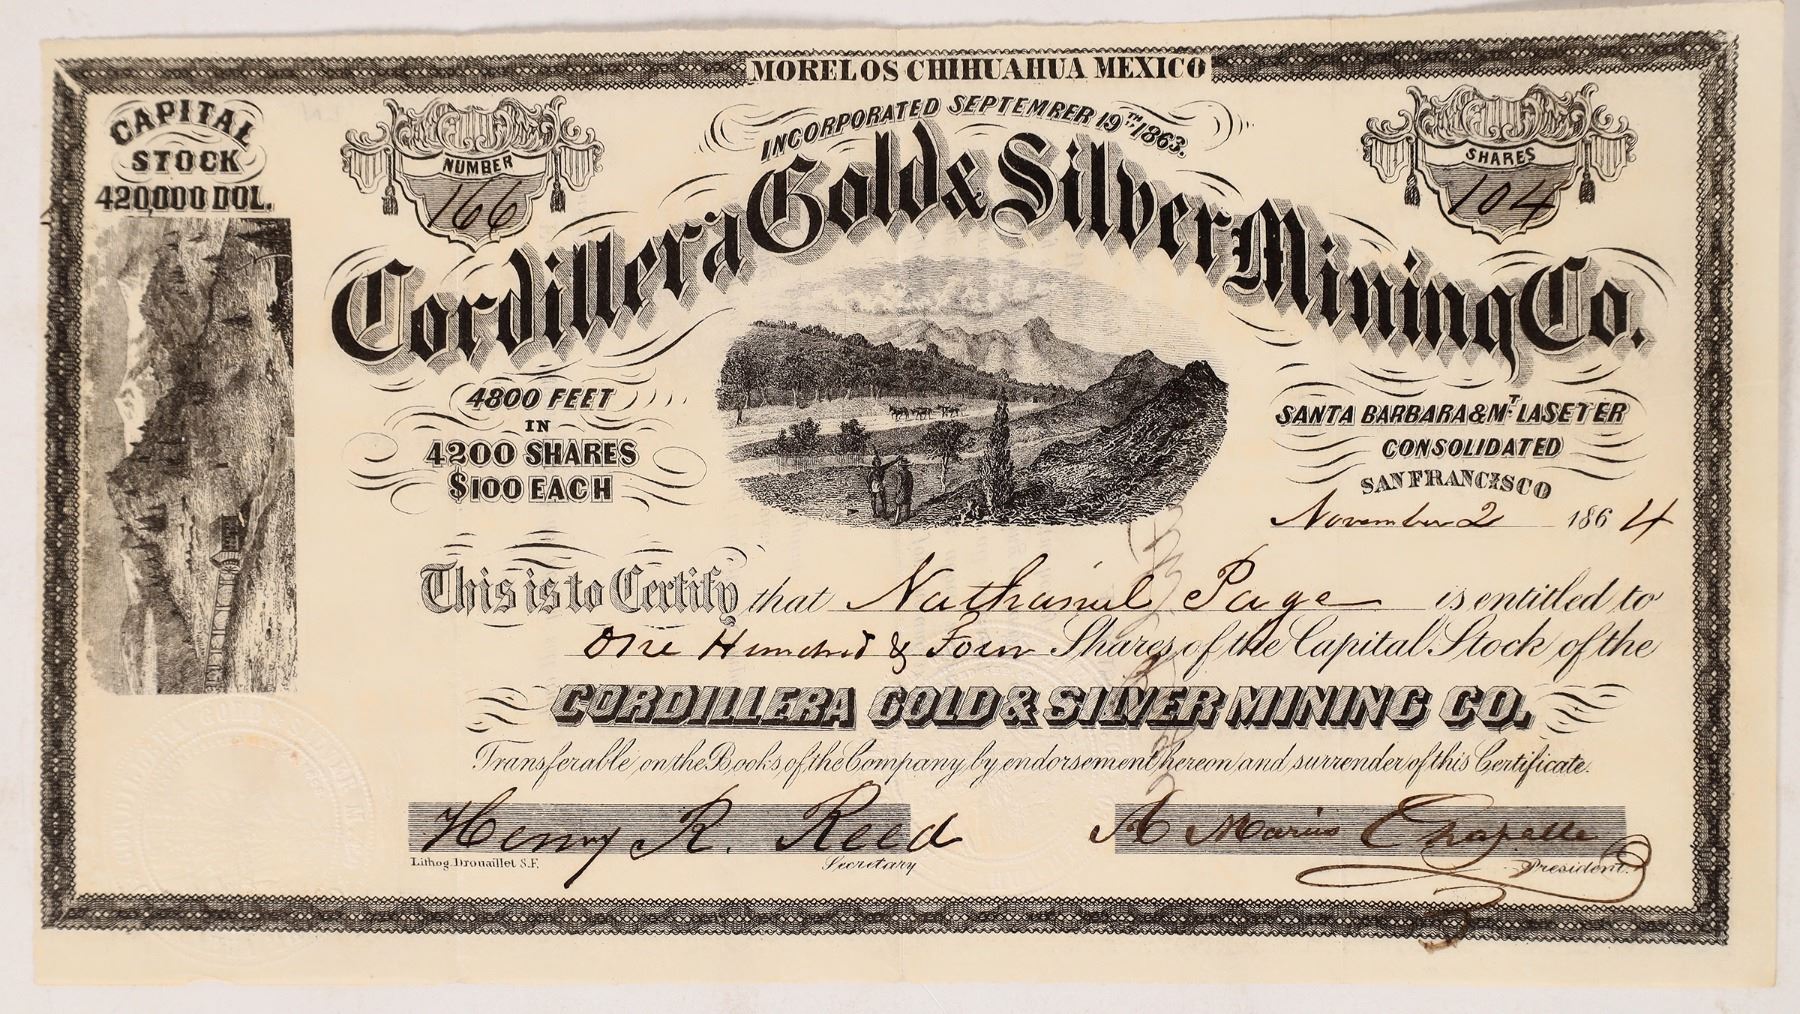 MORELOS CHIHUAHUA MEXICO
INCORPORATED SEPTEMBER 19TH 1863.
CAPITAL
STOCK
420,000 DOL.
NUMBER
166
SHARES
104
Cordillera Gold & Silver Mining Co.
4800 FEET
IN
4200 SHARES
$100 EACH
SANTA BARBARA & MT LASETER
CONSOLIDATED
SAN FRANCISCO
November 2 1864
This is to Certify that Nathaniel Page is entitled to
One Hundred & Four Shares of the Capital Stock of the
CORDILLERA GOLD & SILVER MINING CO.
Transferable on the Books of the Company by endorsement hereon and surrender of this Certificate.
Henry R. Reed
A Marius Chapelle
Lithog. Drouaillet S.F.
Secretary
President.